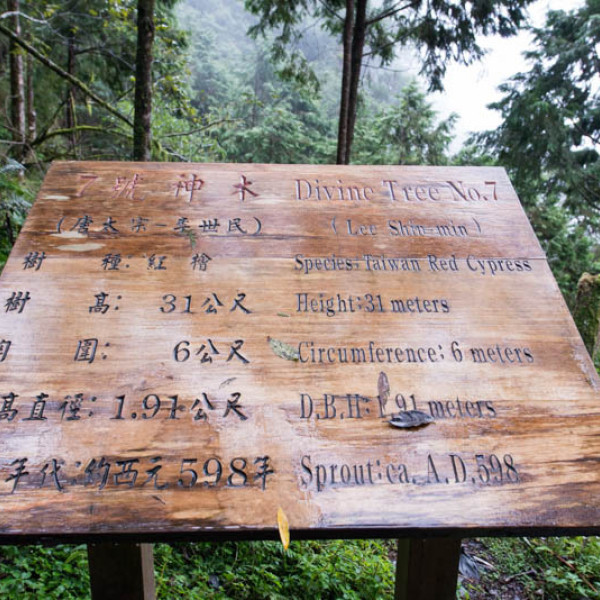 7號神木 Divine Tree No.7
(唐太宗-李世民) (Lee Shin-min)
樹種:紅檜 Species:Taiwan Red Cypress
樹高:31公尺 Height:31 meters
圍:6公尺 Circumference: 6 meters
高直徑:1.91公尺 D.B.H:1.91 meters
年代:約西元598年 Sprout:ca. A.D.598